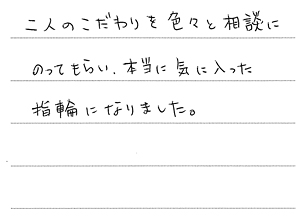 二人のこだわりを色々と相談に
のってもらい、本当に気に入った
指輪になりました。